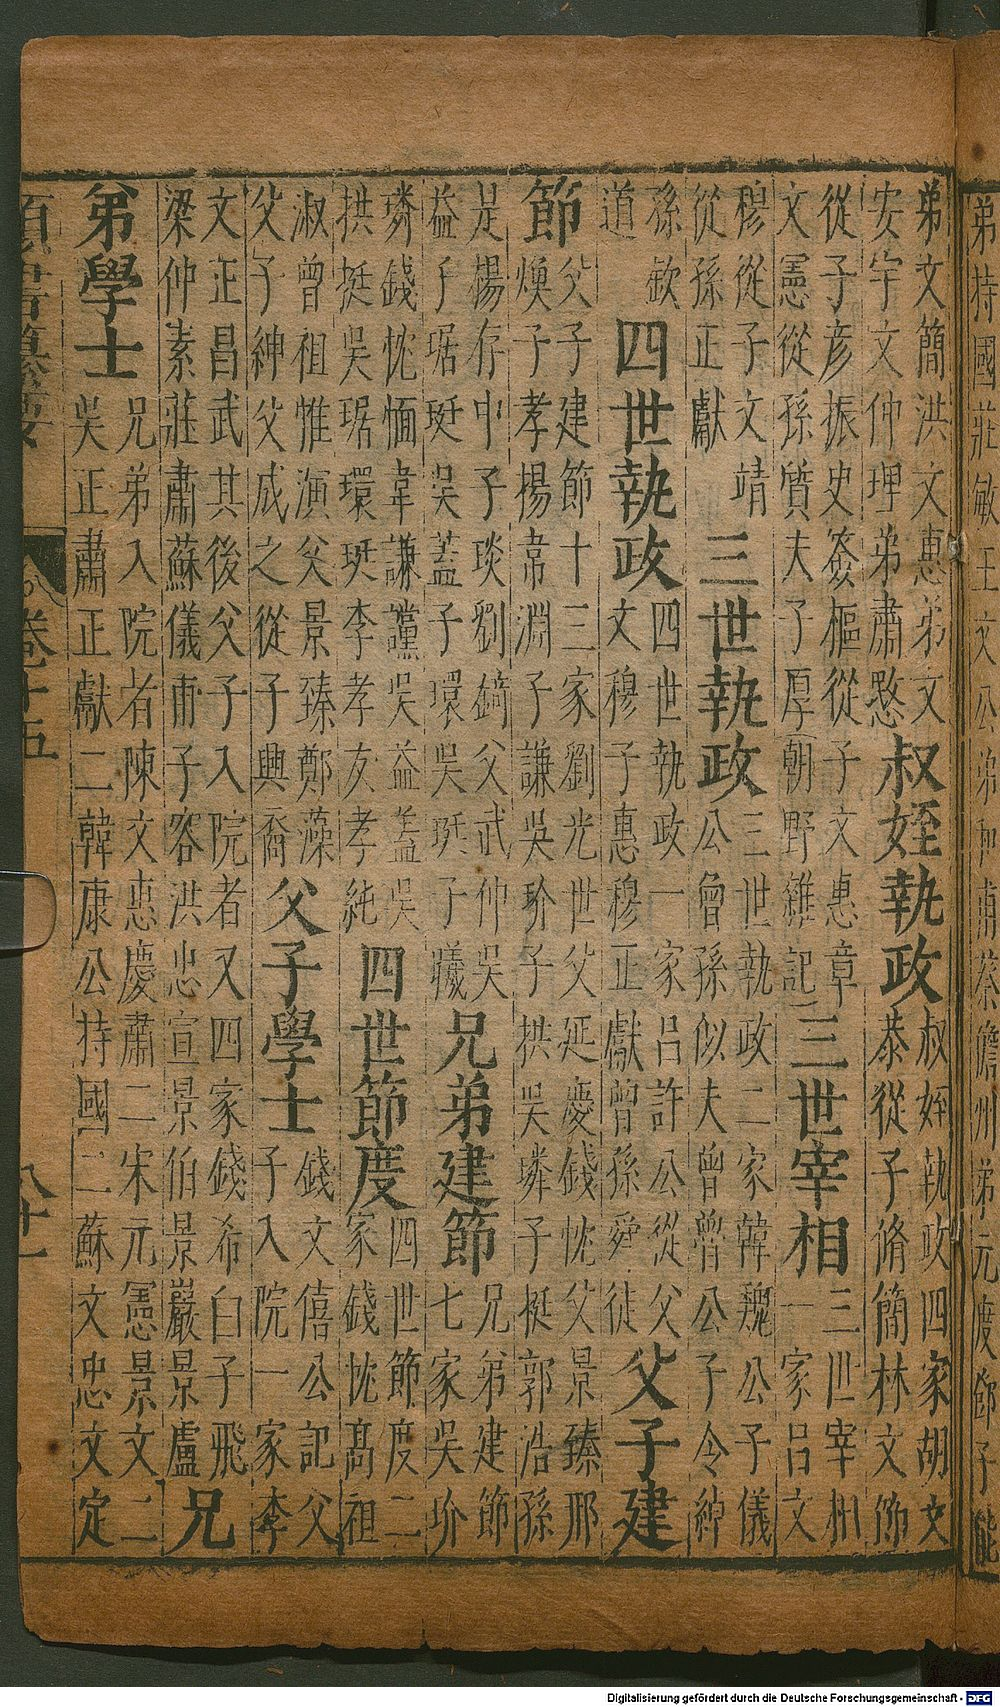 弟文簡洪文惠弟文
安宇文仲理弟肅愍
叔姪執政
叔姪執政四家胡文
恭從子脩簡林文節
從子彥振史簽樞從子文惠章
文憲從孫質夫子厚朝野雜記
三世宰相
三世宰相
一家吕文
穆從子文靖
從孫正獻
三世執政
三世執政二家韓魏公子儀
公曾孫似夫曾曾公子令綽
孫欽
道
四世執政
四世執政一家吕許公從父
文穆子惠穆正獻曾孫舜徒
父子建
節
父子建節十三家劉光世父延慶錢忱父景臻邢
煥子孝楊韋淵子謙吳玠子拱吳璘子挺郭浩孫
是楊存中子琰劉錡父武仲吳
益子琚珽吳蓋子環吳珽子曦
兄弟建節
兄弟建節
七家吳玠
璘錢忱愐韋謙讜吳益蓋吳
拱挺吳琚環珽李孝友孝純
四世節度
四世節度二
家錢忱高祖
淑曾祖惟演父景臻鄭藻
父子紳父成之從子興裔
父子學士
錢文僖公記父
子入院一家李
文正昌武其後父子入院者又四家錢希白子飛
梁仲素莊肅蘇儀甫子容洪忠宣景伯景嚴景盧
兄
弟學士
兄弟入院者陳文惠慶肅二宋元憲景文二
吳正肅正獻二韓康公持國二蘇文忠文定
卷十五
Digitalisierung gefördert durch die Deutsche Forschungsgemeinschaft - DFG